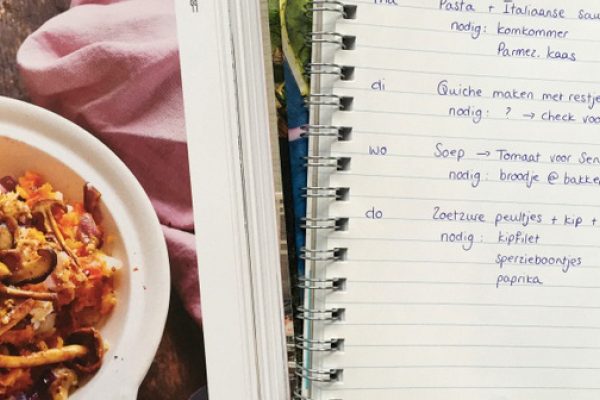 Pasta + Italiaanse
nodig: komkommer
Parmez. kaas
di Quiche maken met restje
nodig: ? → check
wo Soep → Tomaat voor
nodig: broodje @
do Zoetzure peultjes + kip +
nodig: kipfilet
sperzieboontjes
paprika